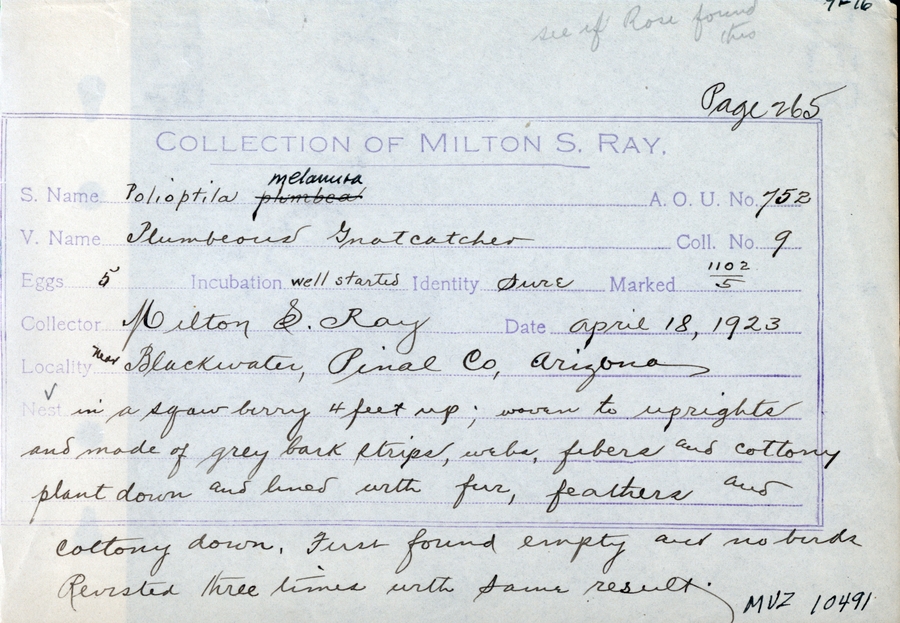 4-16
see if Rose found
this
Page 265
COLLECTION OF MILTON S. RAY.
melanura
S. Name Polioptila plumbea A. O. U. No. 752
V. Name Plumbeous Gnatcatcher Coll. No. 9
Eggs 5 Incubation well started Identity Sure Marked 1102/5
Collector Milton S. Ray Date april 18, 1923
Locality near Blackwater, Pinal Co, Arizona
✓
Nest in a sqawberry 4 feet up; woven to uprights
and made of grey bark strips, webs, fibers and cottony
plant down and lined with fur, feathers and
cottony down. First found empty and no birds
Revisted three times with same result.
MVZ 10491